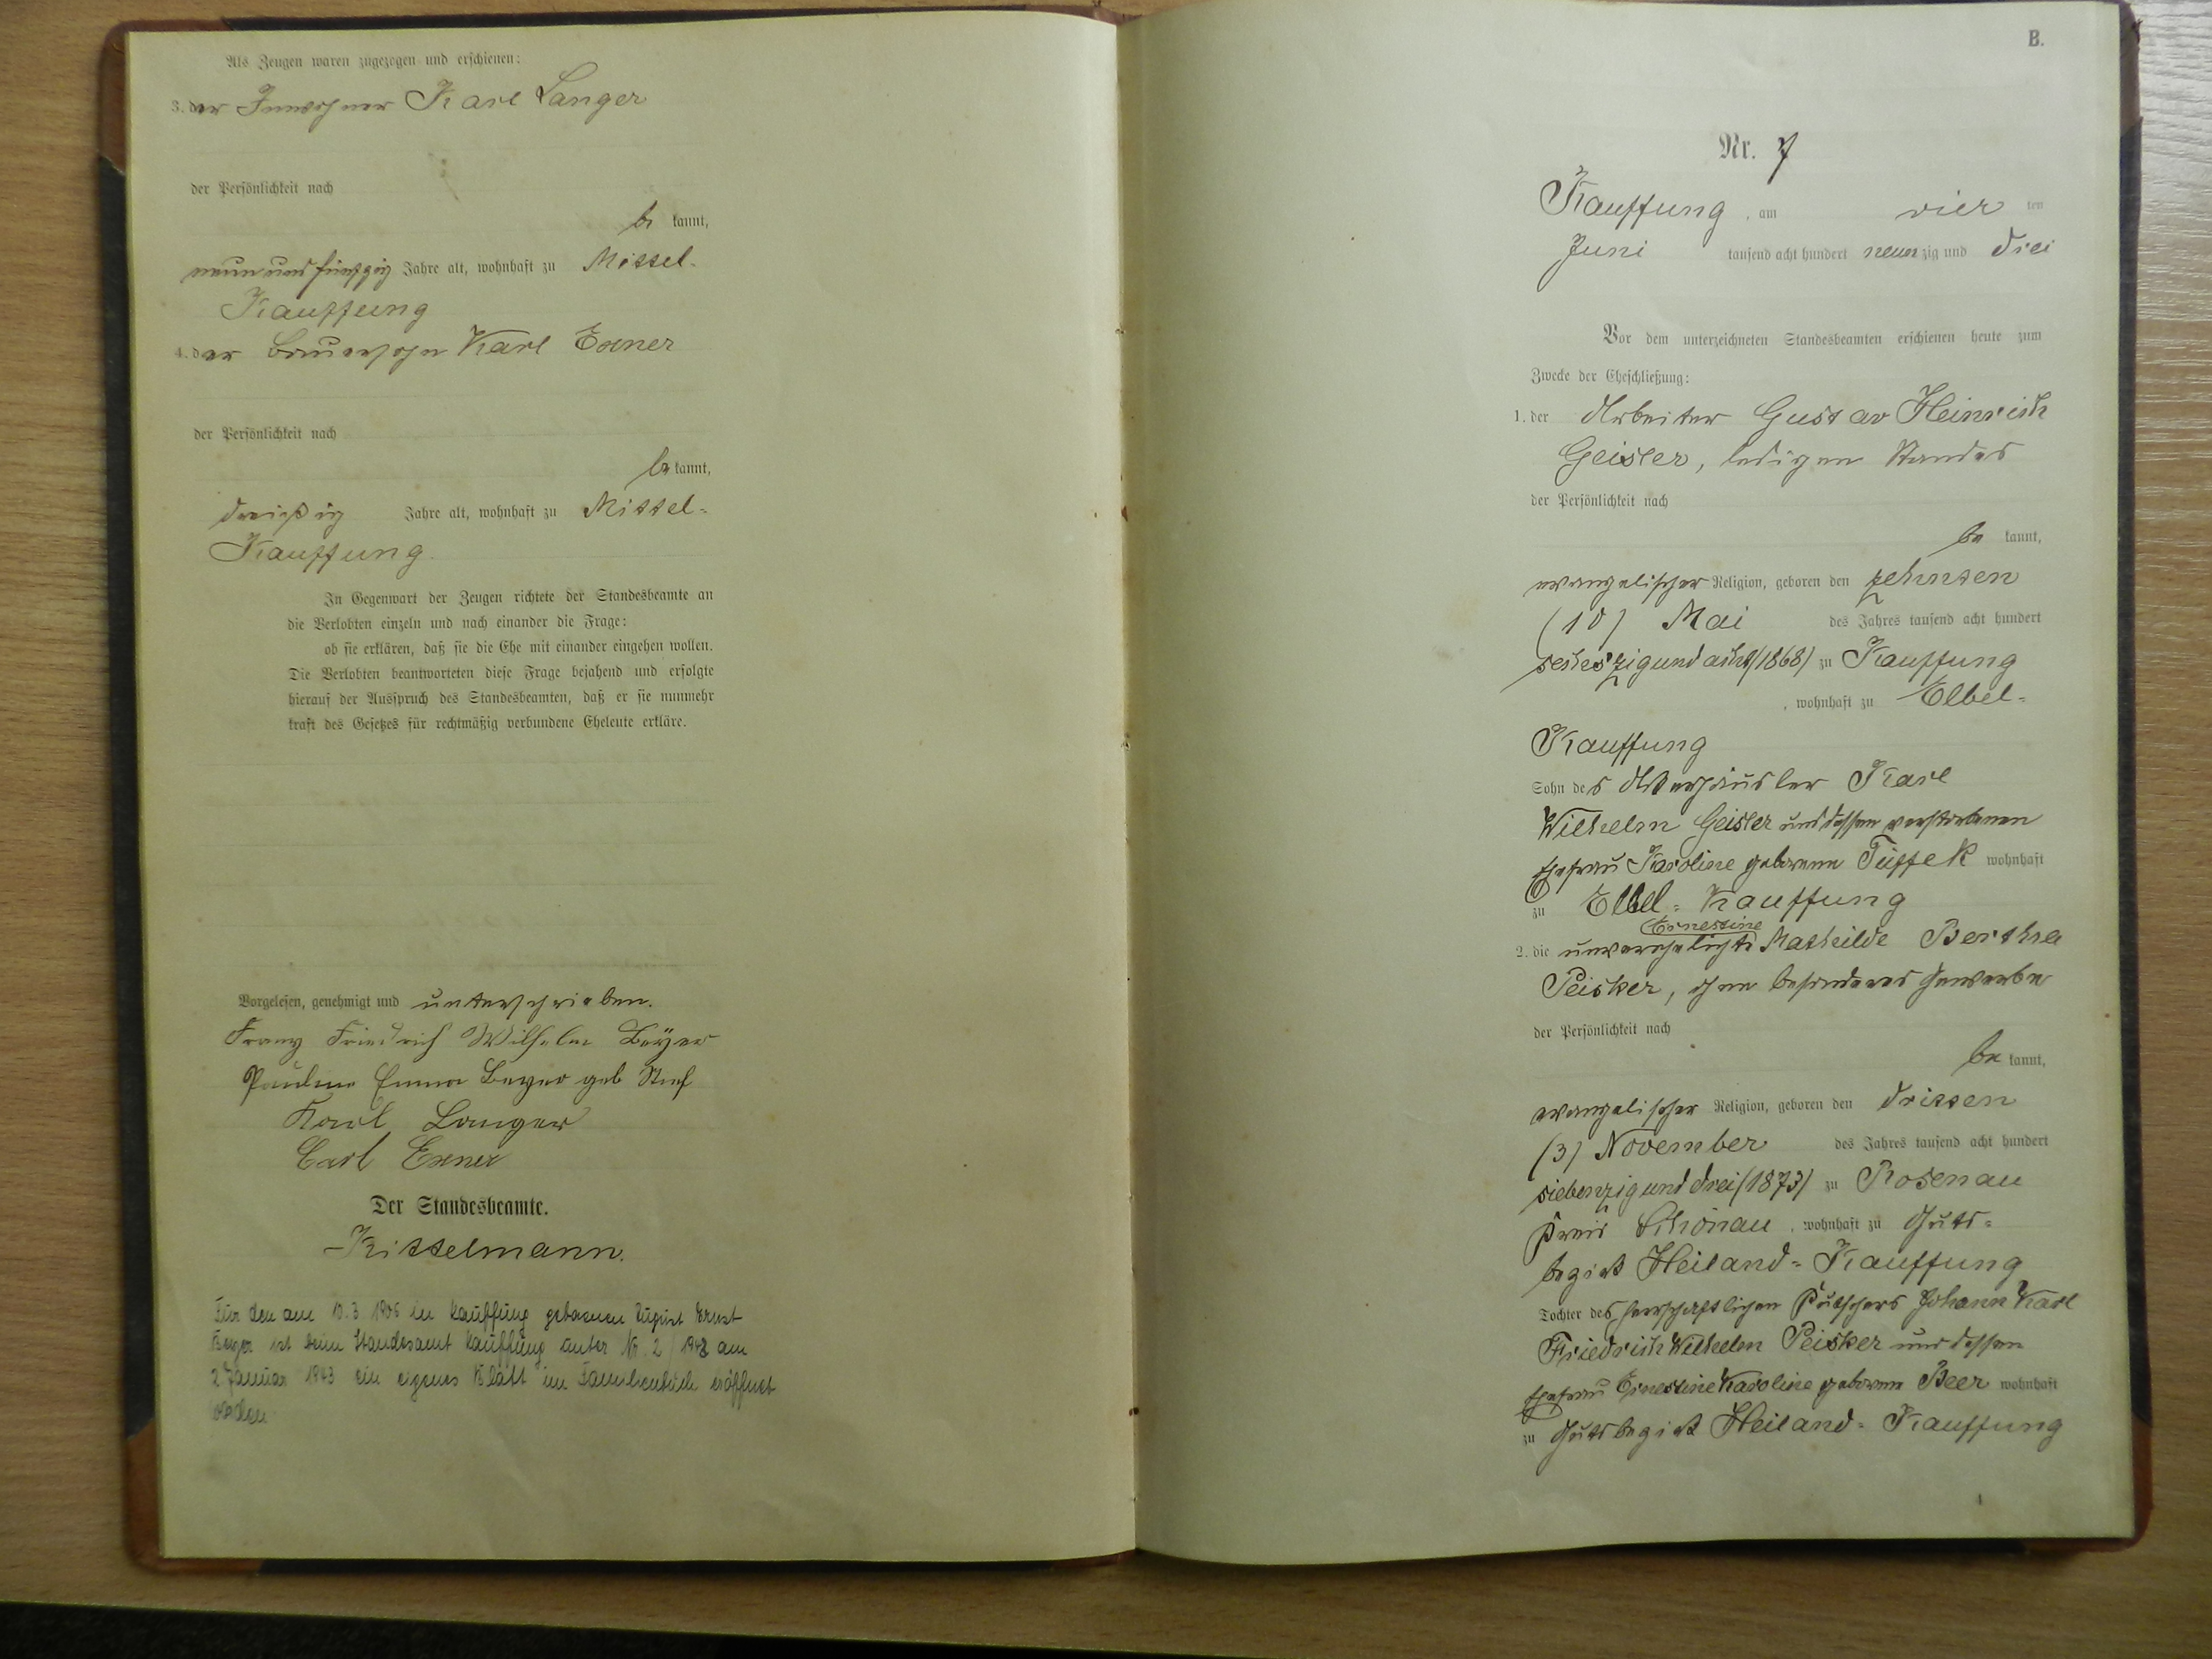 Als Zeugen waren zugezogen und erschienen:
3. der Inwohner Karl Langer
der Persönlichkeit nach
be kannt,
neun und fünfzig Jahre alt, wohnhaft zu Mittel-
Kauffung
4. der Bauersohn Karl Exner
der Persönlichkeit nach
be kannt,
dreißig Jahre alt, wohnhaft zu Mittel-
Kauffung.
In Gegenwart der Zeugen richtete der Standesbeamte an
die Verlobten einzeln und nach einander die Frage:
ob sie erklären, daß sie die Ehe mit einander eingehen wollen.
Die Verlobten beantworteten diese Frage bejahend und erfolgte
hierauf der Ausspruch des Standesbeamten, daß er sie nunmehr
kraft des Gesetzes für rechtmäßig verbundene Eheleute erkläre.
Vorgelesen, genehmigt und unterschrieben.
Franz Friedrich Wilhelm Beyer
Pauline Emma Beyer geb
Karl Langer
Carl Exner
Der Standesbeamte.
Kittelmann.
Für den am 10.3 1906 in Kauffung geborenen August Ernst
Beyer ist beim Standesamt Kauffung unter Nr. 2 / 1943 am
2 Januar 1943 ein eigenes Blatt im Familienbuch eröffnet
worden
B.
Nr. 7
Kauffung, am vier ten
Juni tausend acht hundert neun zig und drei
Vor dem unterzeichneten Standesbeamten erschienen heute zum
Zwecke der Eheschließung:
1. der Arbeiter Gustav Heinrich
Geisler, ledigen Standes
der Persönlichkeit nach
be kannt,
evangelischer Religion, geboren den zehnten
(10) Mai des Jahres tausend acht hundert
sechszig und acht (1868) zu Kauffung
, wohnhaft zu Elbel-
Kauffung
Sohn des Karl
Wilhelm Geisler und dessen verstorbenen
Ehefrau Karoline geborene Tüffek wohnhaft
zu Elbel-Kauffung
Ernestine
2. die unverehelichte Mathilde Bertha
Peisker, ohne besonderes Gewerbe
der Persönlichkeit nach
be kannt,
evangelischer Religion, geboren den dritten
(3) November des Jahres tausend acht hundert
siebenzig und drei (1873) zu Rosenau
Kreis Schönau, wohnhaft zu Guts-
bezirk Heiland-Kauffung
Tochter des herrschaftlichen Kutschers Johann Karl
Friedrich Wilhelm Peisker und dessen
Ehefrau Ernestine Karoline geborene Beer wohnhaft
zu Gutsbezirk Heiland-Kauffung